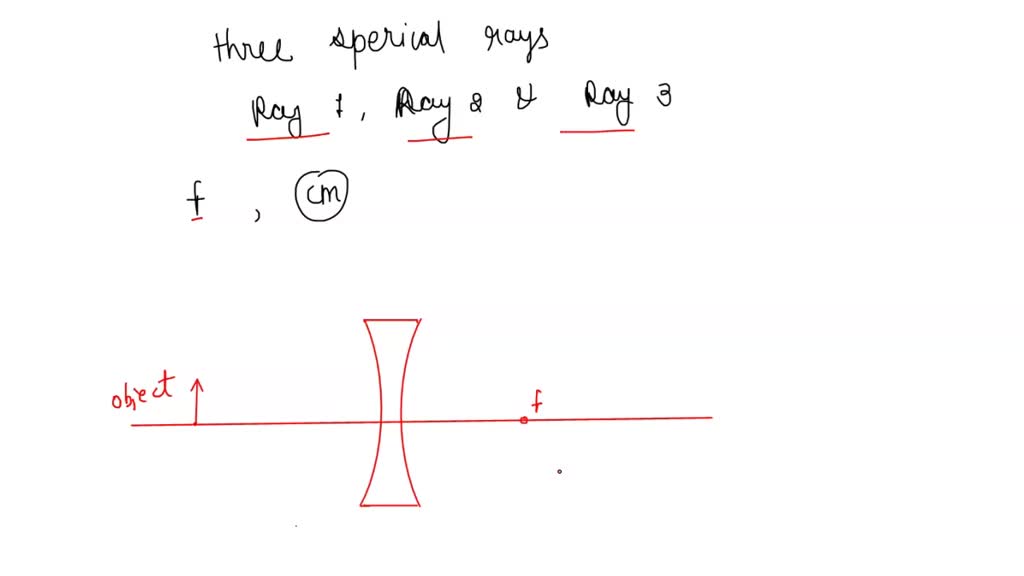 three sperical rays
Ray 1, Ray 2 & Ray 3
f , cm
object
f